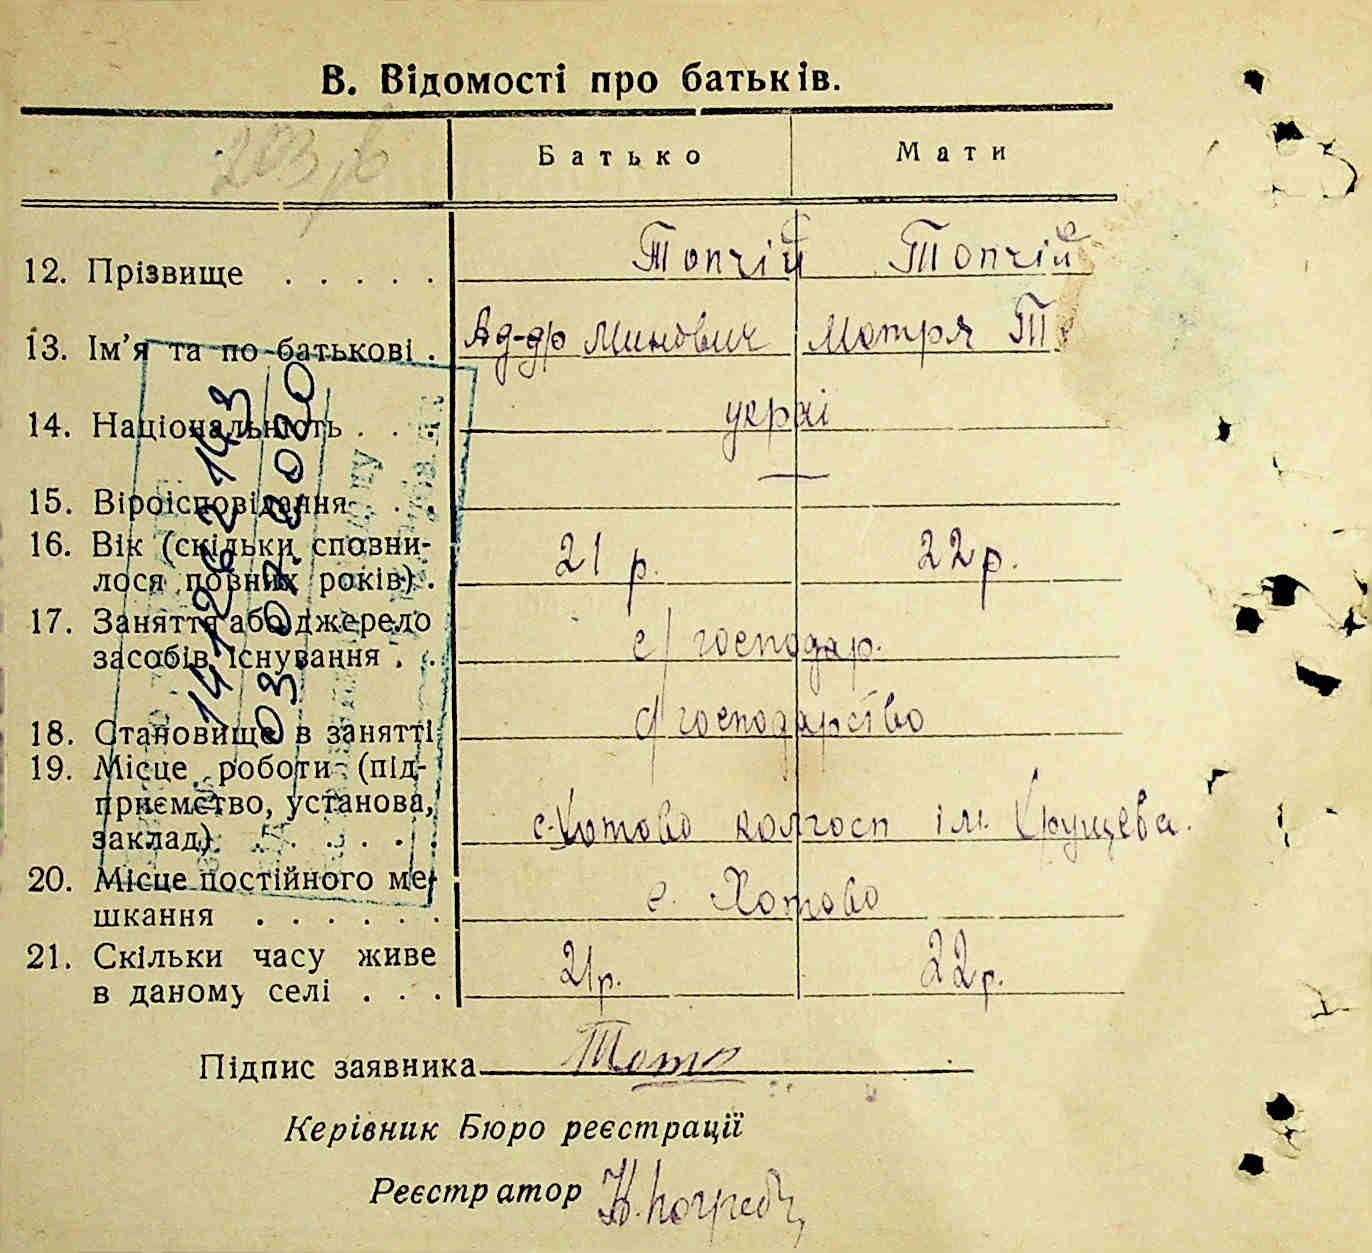 В. Відомості про батьків.
Батько Мати
12. Прізвище . . . . . Топчій Топчій
13. Ім'я та по-батькові . Ад-др Минович Мотря Т
14. Національність . . . украі
15. Віроісповідання . . . —
16. Вік (скільки сповни-
лося повних років) . 21 р. 22 р.
17. Заняття або джерело
засобів існування . . с/господар.
18. Становище в занятті с/господарство
19. Місце роботи (під-
приємство, установа,
заклад) . . . . . . с. Хотово колгосп ім. Хрущева.
20. Місце постійного ме-
шкання . . . . . . с. Хотово
21. Скільки часу живе
в даному селі . . . 21р. 22р.
Підпис заявника
Керівник Бюро реєстрації
Реєстратор